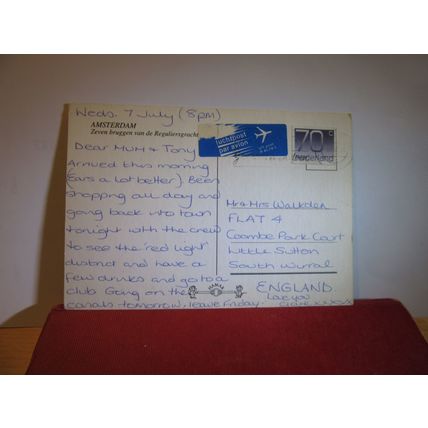 Weds. 7 July (8pm)
AMSTERDAM
Zeven bruggen van de Reguliersgracht
Dear Mum & Tony
Arrived this morning
(Ears a lot better). Been
shopping all day and
going back into town
tonight with the crew
to see the 'red light'
district and have a
few drinks and go to a
club. Going on the
canals tomorrow, leave Friday.
Love you
Claire xxxxx
luchtpost
par avion
70 c
nederland
Mr & Mrs Walkden
FLAT 4
Coombe Park Court
Little Sutton
South Wirral
ENGLAND